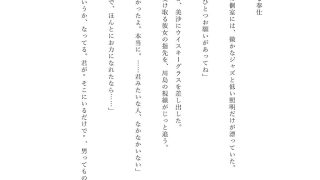 奉仕
個室には、微かなジャズと低い照明だけが漂っていた。
ひとつお願いがあってね」
、美沙にウイスキーグラスを差し出した。
け取る彼女の指先を、川島の視線がじっと追う。
かったよ。本当に。……君みたいな人、なかなかいない」
で、ほんとにお力になれたなら……」
いうか、なってる。君が“そこにいるだけで”、男ってもの